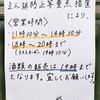 まん延防止等重点措置
により、
〈営業時間〉
11時10分～14時10分
18時～20時まで
酒類の販売は19時まで
となります。宜しくお願い